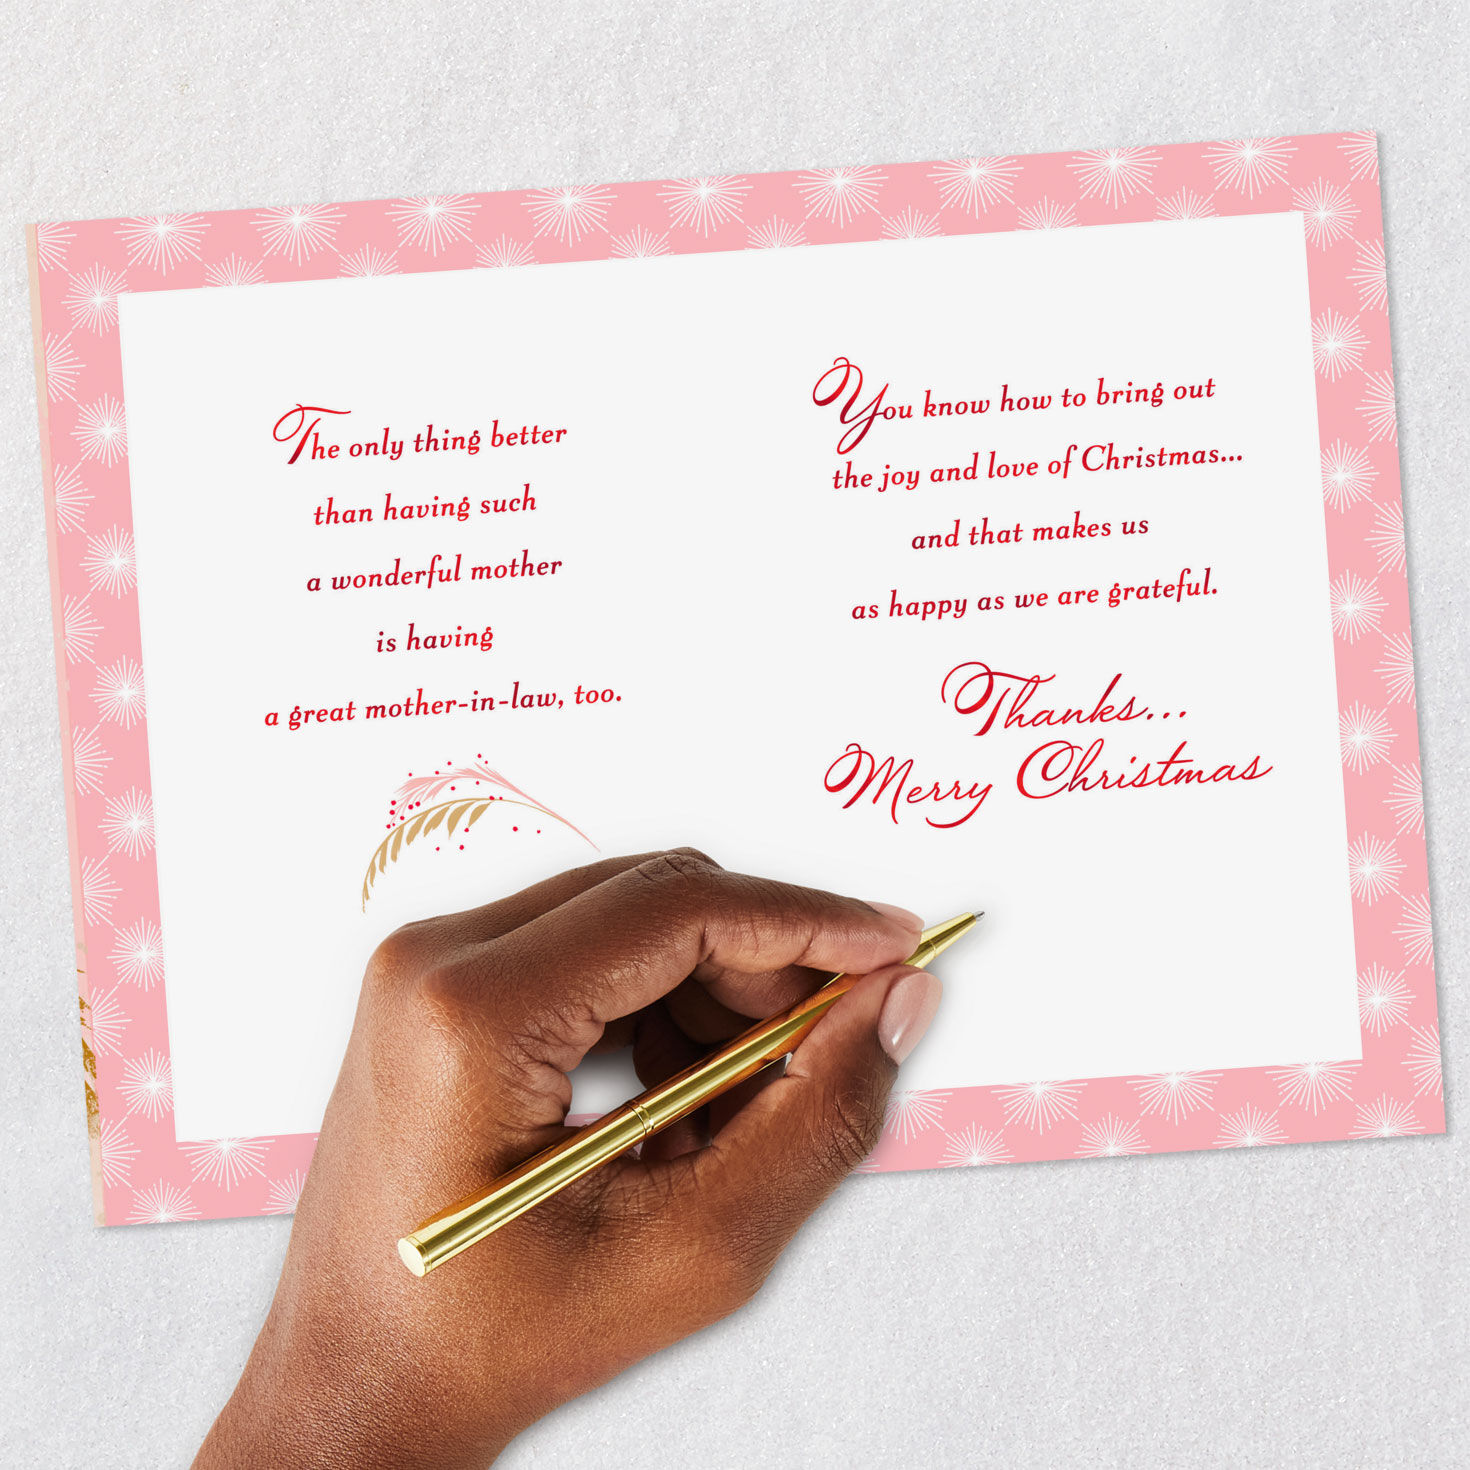 The only thing better
than having such
a wonderful mother
is having
a great mother-in-law, too.
You know how to bring out
the joy and love of Christmas...
and that makes us
as happy as we are grateful.
Thanks...
Merry Christmas